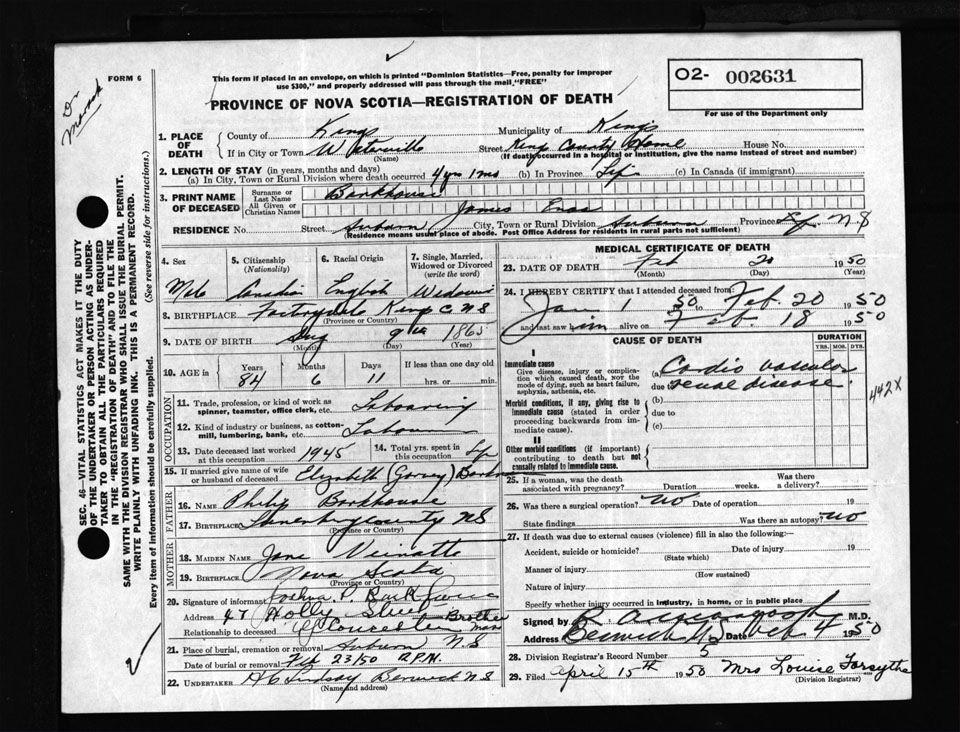 Dr
FORM 6
This form if placed in an envelope, on which is printed "Dominion Statistics—Free, penalty for improper
use $300," and properly addressed will pass through the mail, "FREE"
O2- 002631
For use of the Department only
PROVINCE OF NOVA SCOTIA—REGISTRATION OF DEATH
SEC. 46—VITAL STATISTICS ACT MAKES IT THE DUTY
OF THE UNDERTAKER OR PERSON ACTING AS UNDER-
TAKER TO OBTAIN ALL THE PARTICULARS REQUIRED
IN THE "REGISTRATION OF DEATH" AND TO FILE THE
SAME WITH THE DIVISION REGISTRAR WHO SHALL ISSUE THE BURIAL PERMIT.
WRITE PLAINLY WITH UNFADING INK. THIS IS A PERMANENT RECORD.
Every item of information should be carefully supplied. (See reverse side for instructions.)
1. PLACE OF DEATH
County of Kings Municipality of Kings
If in City or Town Waterville Street Kings County Home House No.
(Name) (If death occurred in a hospital or institution, give the name instead of street and number)
2. LENGTH OF STAY (in years, months and days)
(a) In City, Town or Rural Division where death occurred 4 yrs 1 mo (b) In Province Life (c) In Canada (if immigrant)
3. PRINT NAME OF DECEASED
Surname or Last Name Barkhouse
All Given or Christian Names James
RESIDENCE No. Street Auburn City, Town or Rural Division Auburn Province N S
(Residence means usual place of abode. Post Office Address for residents in rural parts not sufficient)
4. Sex 5. Citizenship (Nationality) 6. Racial Origin 7. Single, Married, Widowed or Divorced (write the word)
Male Canadian English Widower
8. BIRTHPLACE Factorydale Kings C. N S
(Province or Country)
9. DATE OF BIRTH Aug 9th 1865
(Month) (Day) (Year)
10. AGE in Years Months Days If less than one day old
84 6 11 hrs. or min.
OCCUPATION
11. Trade, profession or kind of work as spinner, teamster, office clerk, etc. Labouring
12. Kind of industry or business, as cotton-mill, lumbering, bank, etc. Labour
13. Date deceased last worked 1945 14. Total yrs. spent in this occupation Life
15. If married give name of wife or husband of deceased Elizabeth (Gormy) Barkhouse
FATHER
16. Name Philip Barkhouse
17. Birthplace Lunenburg County N S
(Province or Country)
MOTHER
18. Maiden Name Jane Veinotte
19. Birthplace Nova Scotia
(Province or Country)
20. Signature of informant Joshua P. Barkhouse
Address 47 Holly Street
Relationship to deceased Brother Mass
21. Place of burial, cremation or removal Auburn N S
Date of burial or removal Feb 23/50 2 P.M.
22. UNDERTAKER H C Lindsay Berwick N S
(Name and address)
MEDICAL CERTIFICATE OF DEATH
23. DATE OF DEATH Feb 20 1950
(Month) (Day) (Year)
24. I HEREBY CERTIFY that I attended deceased from:
Jan 1 50 to Feb. 20 1950
and last saw him alive on Feb. 18 1950
CAUSE OF DEATH DURATION
YRS. MOS. DYS.
I
Immediate cause
Give disease, injury or complication which caused death, NOT the mode of dying, such as heart failure, asphyxia, asthenia, etc.
(a) Cardio vascular
due to renal disease
442X
Morbid conditions, if any, giving rise to immediate cause (stated in order proceeding backwards from immediate cause).
(b)
due to
(c)
II
Other morbid conditions (if important) contributing to death but not causally related to immediate cause.
25. If a woman, was the death associated with pregnancy? Duration weeks. Was there a delivery?
26. Was there a surgical operation? No Date of operation 19
State findings Was there an autopsy? No
27. If death was due to external causes (violence) fill in also the following:—
Accident, suicide or homicide? Date of injury 19
(State which)
Manner of injury
(How sustained)
Nature of injury
Specify whether injury occurred in industry, in home, or in public place
Signed by M.D.
Address Berwick NS Date 4 1950
28. Division Registrar's Record Number 5
29. Filed April 15th 1950 Mrs Louise Forsythe
(Division Registrar)